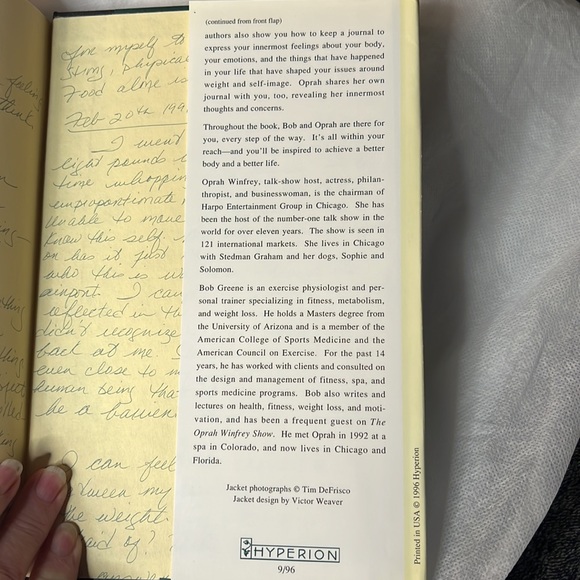 feeling
think
love myself to
strong, physical
Food alone is
Feb 20th 199
I went
eight pounds
time whoppin
unproportionate
Unable to move
Know this self.
on has it just
who this is
airport. I can
reflected in th
didn't recognize
back at me.
even close to m
human being tha
be a barren
I can feel
tween my
the weight.
aid of?
(continued from front flap)
authors also show you how to keep a journal to
express your innermost feelings about your body,
your emotions, and the things that have happened
in your life that have shaped your issues around
weight and self-image. Oprah shares her own
journal with you, too, revealing her innermost
thoughts and concerns.
Throughout the book, Bob and Oprah are there for
you, every step of the way. It's all within your
reach—and you'll be inspired to achieve a better
body and a better life.
Oprah Winfrey, talk-show host, actress, philan-
thropist, and businesswoman, is the chairman of
Harpo Entertainment Group in Chicago. She has
been the host of the number-one talk show in the
world for over eleven years. The show is seen in
121 international markets. She lives in Chicago
with Stedman Graham and her dogs, Sophie and
Solomon.
Bob Greene is an exercise physiologist and per-
sonal trainer specializing in fitness, metabolism,
and weight loss. He holds a Masters degree from
the University of Arizona and is a member of the
American College of Sports Medicine and the
American Council on Exercise. For the past 14
years, he has worked with clients and consulted on
the design and management of fitness, spa, and
sports medicine programs. Bob also writes and
lectures on health, fitness, weight loss, and moti-
vation, and has been a frequent guest on The
Oprah Winfrey Show. He met Oprah in 1992 at a
spa in Colorado, and now lives in Chicago and
Florida.
Jacket photographs © Tim DeFrisco
Jacket design by Victor Weaver
HYPERION
9/96
Printed in USA © 1996 Hyperion